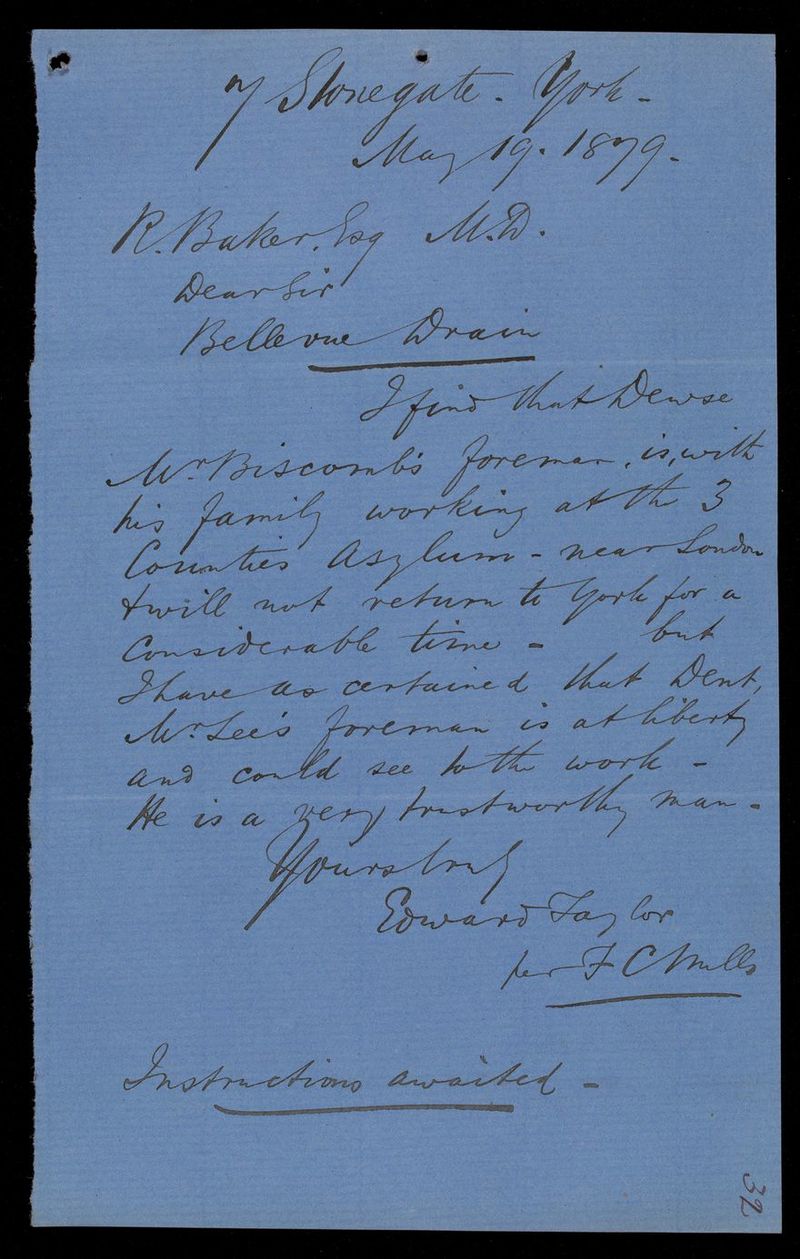 7 Stonegate - York -
May 19. 1879.
R. Baker, Esq M.D.
Dear Sir
Bellevue Drain
I find that Dewse
Mr Biscomb's foreman, is, with
his family working at the 3
Counties Asylum - near London
& will not return to York for a
considerable time - but
I have ascertained that Dent,
Mr Lee's foreman is at liberty
and could see to the work -
He is a very trustworthy man -
Yours truly
Edward Taylor
per F C Mills
Instructions awaited -
32